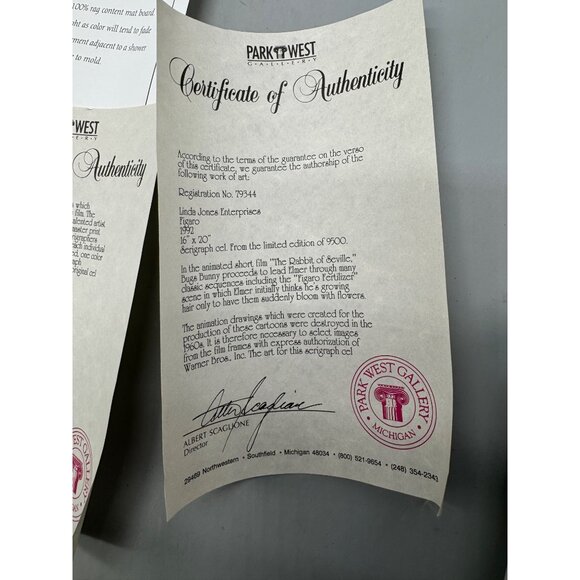 100% rag content mat board.
ght as color will tend to fade
rment adjacent to a shower
to mold.
WEST
ERY
Authenticity
s which
film. The
talented artist
master print
rigraphers
ach individual
ed, one color
graph
original cel
WEST GALLERY
PARK WEST
GALLERY
Certificate of Authenticity
According to the terms of the guarantee on the verso
of this certificate, we guarantee the authorship of the
following work of art:
Registration No. 79344
Linda Jones Enterprises
Figaro
1992
16" x 20"
Serigraph cel. From the limited edition of 9500.
In the animated short film "The Rabbit of Seville,"
Bugs Bunny proceeds to lead Elmer through many
classic sequences including the "Figaro Fertilizer"
scene in which Elmer initially thinks he's growing
hair only to have them suddenly bloom with flowers.
The animation drawings which were created for the
production of these cartoons were destroyed in the
1960s. It is therefore necessary to select images
from the film frames with express authorization of
Warner Bros., Inc. The art for this serigraph cel
Albert Scaglione
ALBERT SCAGLIONE
Director
PARK WEST GALLERY
• MICHIGAN •
29469 Northwestern • Southfield • Michigan 48034 • (800) 521-9654 • (248) 354-2343